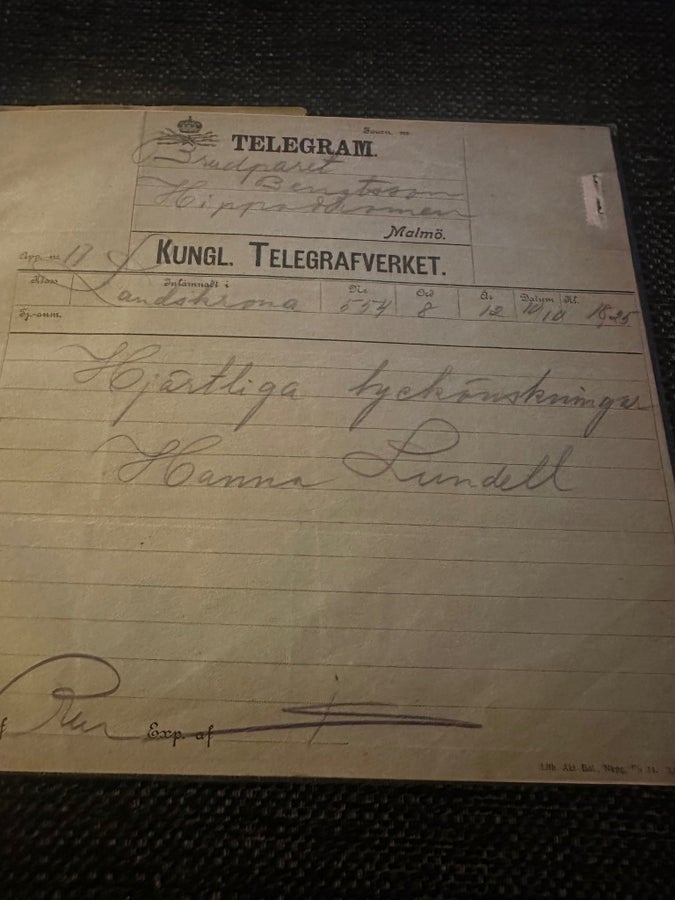 TELEGRAM.
Brudparet
Bengtsson
Hippodromen
Malmö.
App. nr. 17
KUNGL. TELEGRAFVERKET.
Klass Inlämnadt i Nr Ord Är Datum Kl.
Landskrona 554 8 12 10/10 18,25
Tj.-anm.
Hjärtliga lyckönskningar
Hanna Lundell
Exp. af